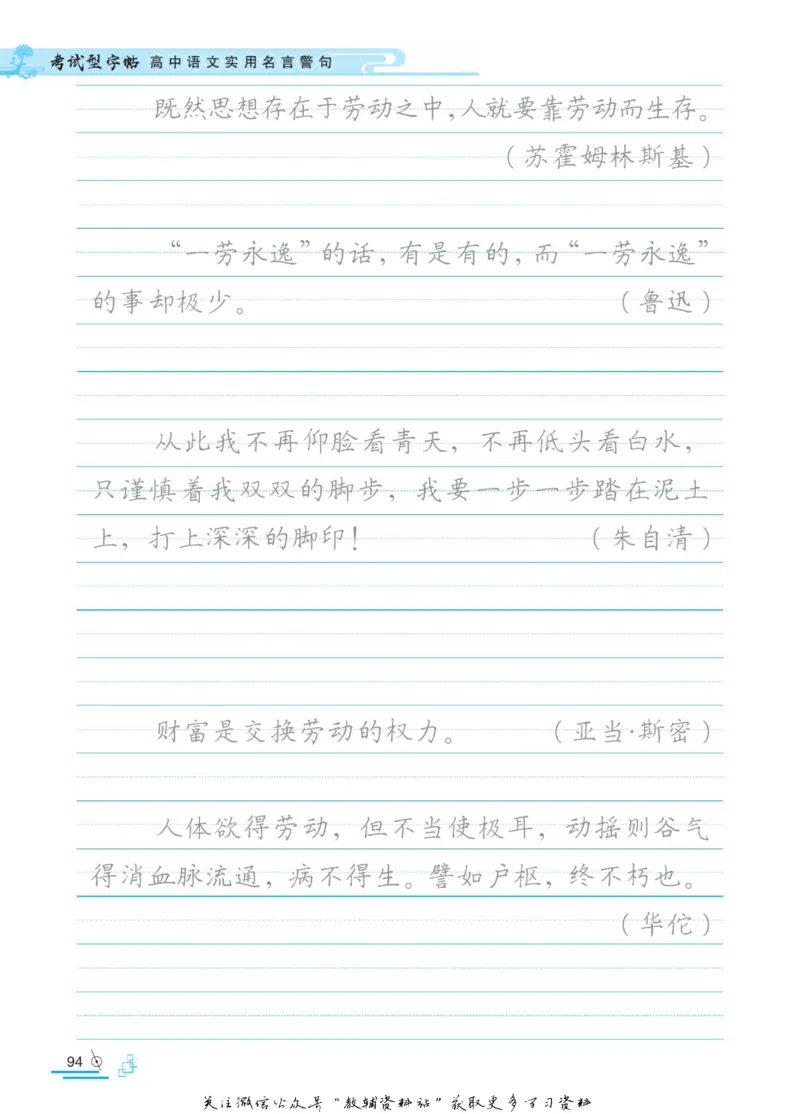 考试型字帖 高中语文实用名言警句
既然思想存在于劳动之中,人就要靠劳动而生存。
（苏霍姆林斯基）
“一劳永逸”的话，有是有的，而“一劳永逸”
的事却极少。 （鲁迅）
从此我不再仰脸看青天，不再低头看白水，
只谨慎着我双双的脚步，我要一步一步踏在泥土
上，打上深深的脚印！ （朱自清）
财富是交换劳动的权力。 （亚当·斯密）
人体欲得劳动，但不当使极耳，动摇则谷气
得消血脉流通，病不得生。譬如户枢，终不朽也。
（华佗）
94
关注微信公众号“教辅资料站”获取更多学习资料